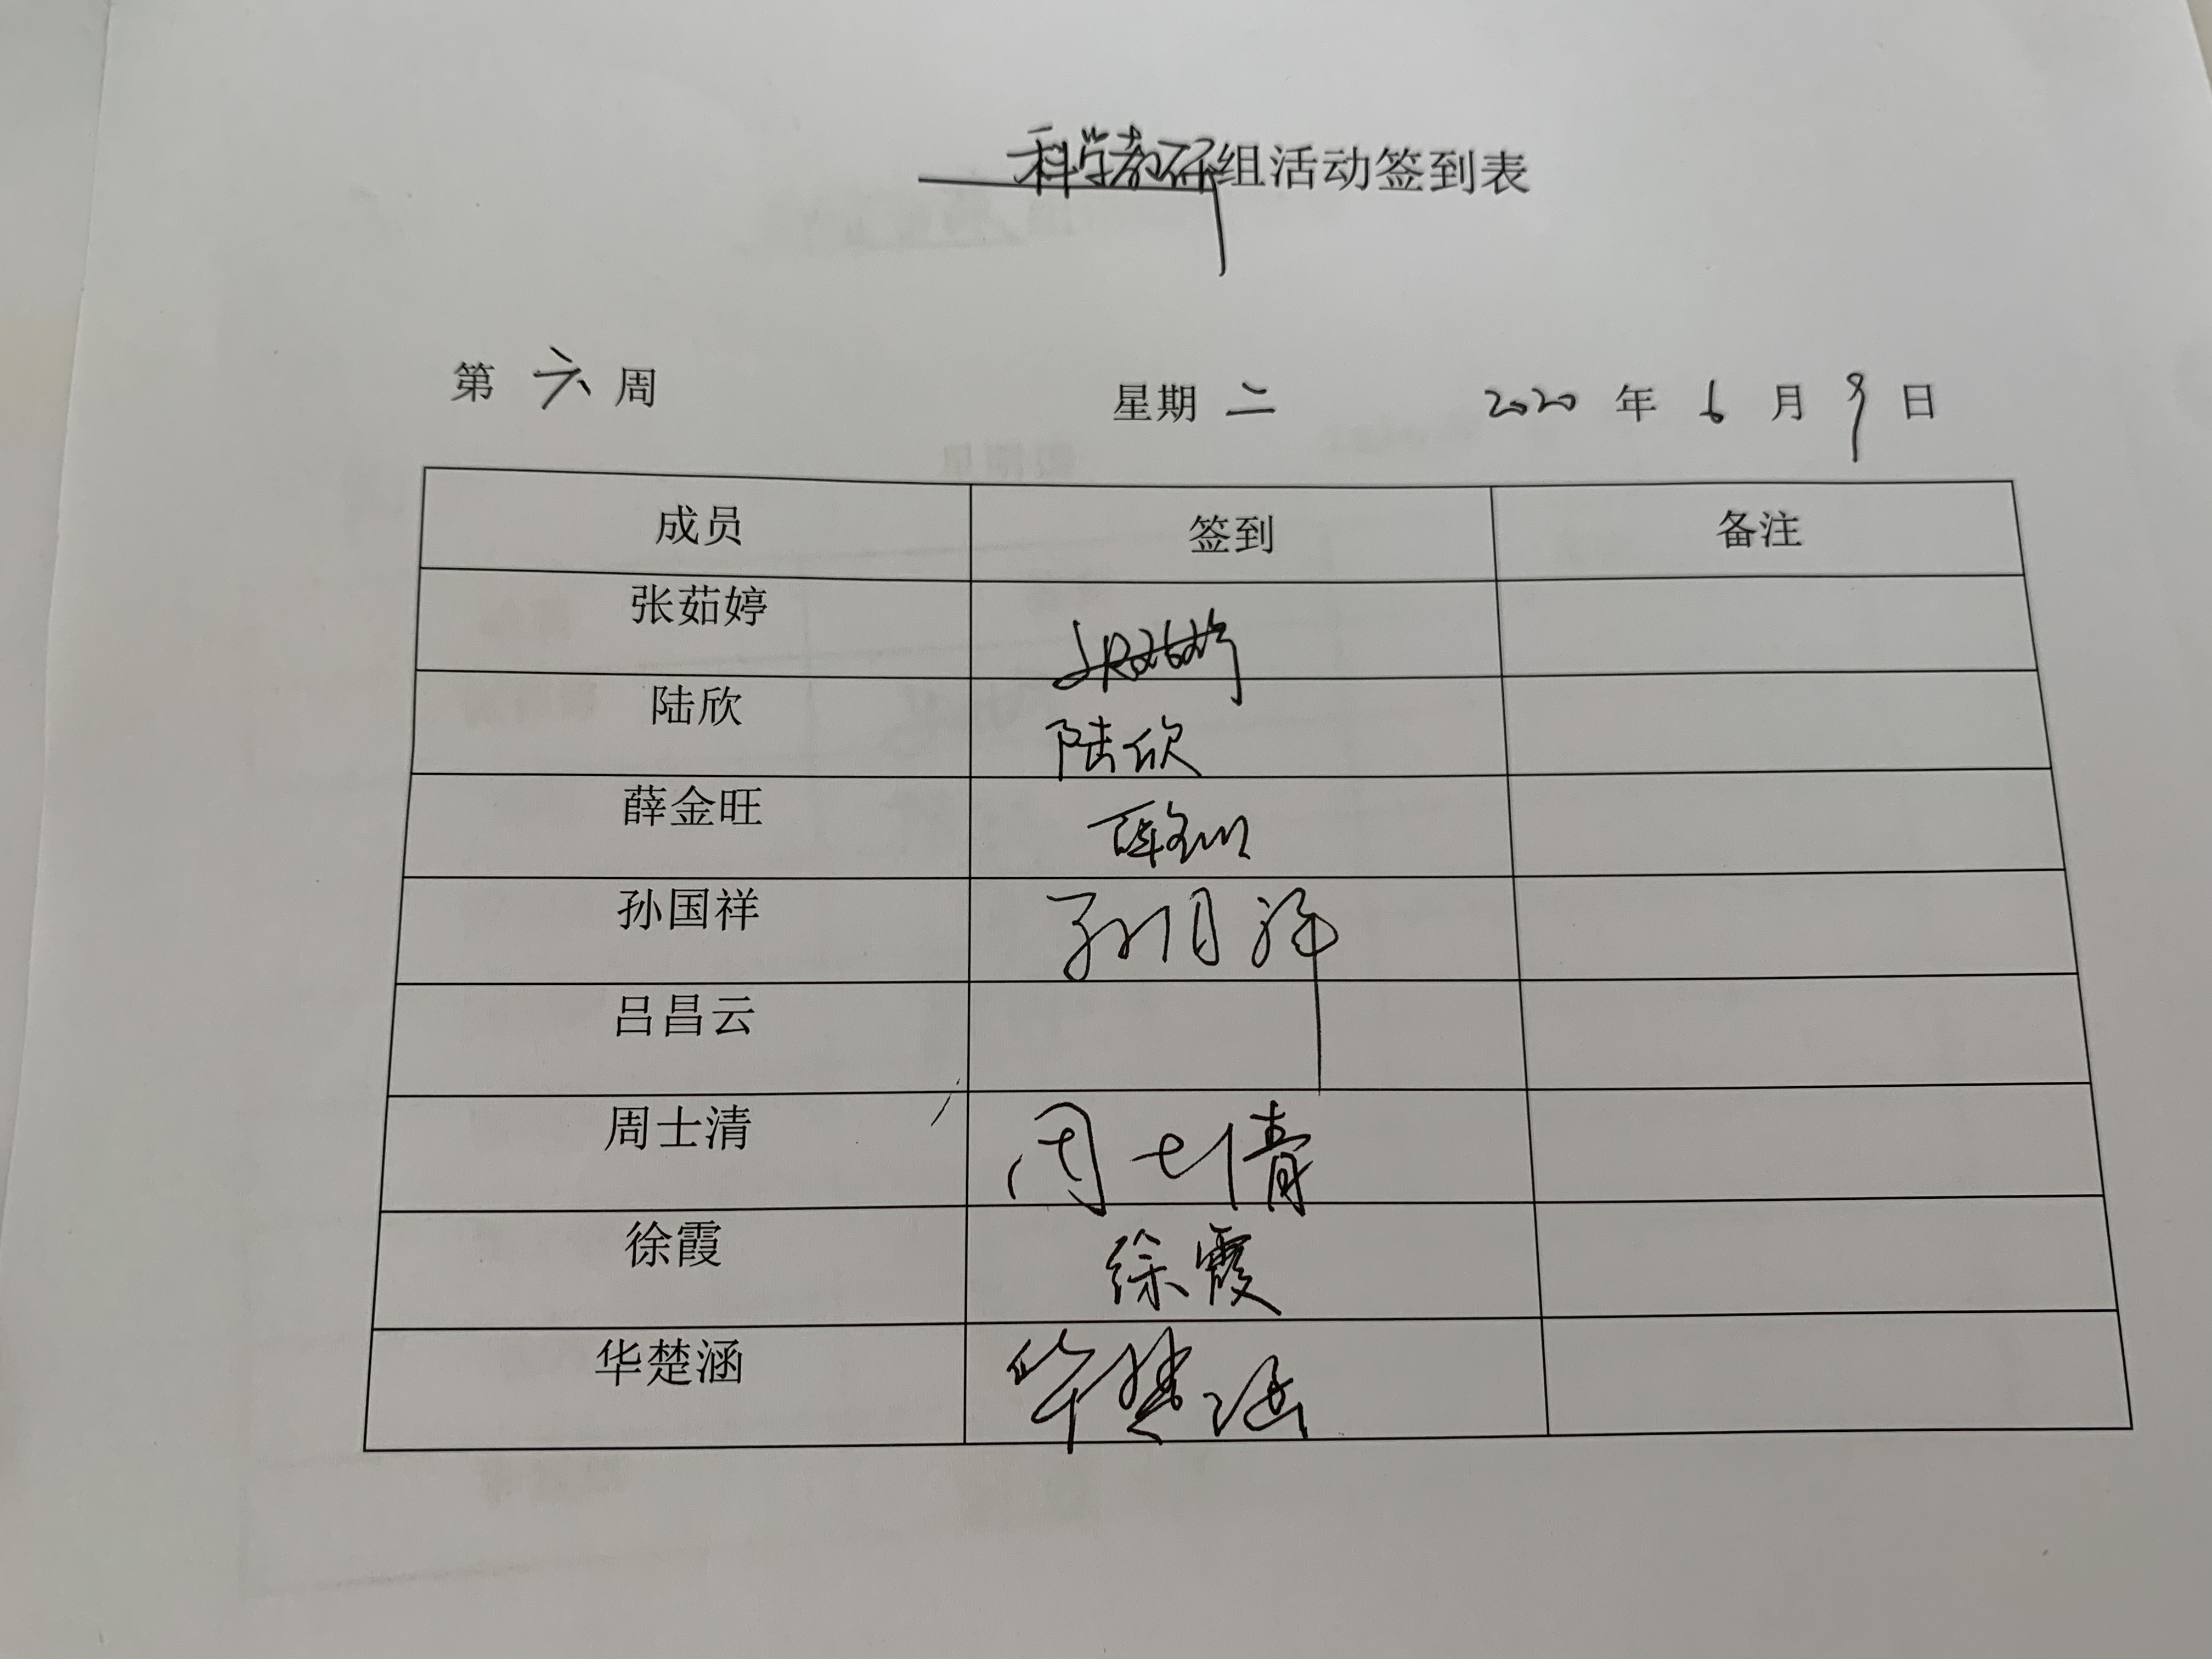 科学教研组活动签到表
第 六 周 星期 二 2020 年 6 月 9 日
成员 签到 备注
张茹婷 张茹婷
陆欣 陆欣
薛金旺 薛金旺
孙国祥 孙国祥
吕昌云
周士清 周士清
徐霞 徐霞
华楚涵 华楚涵